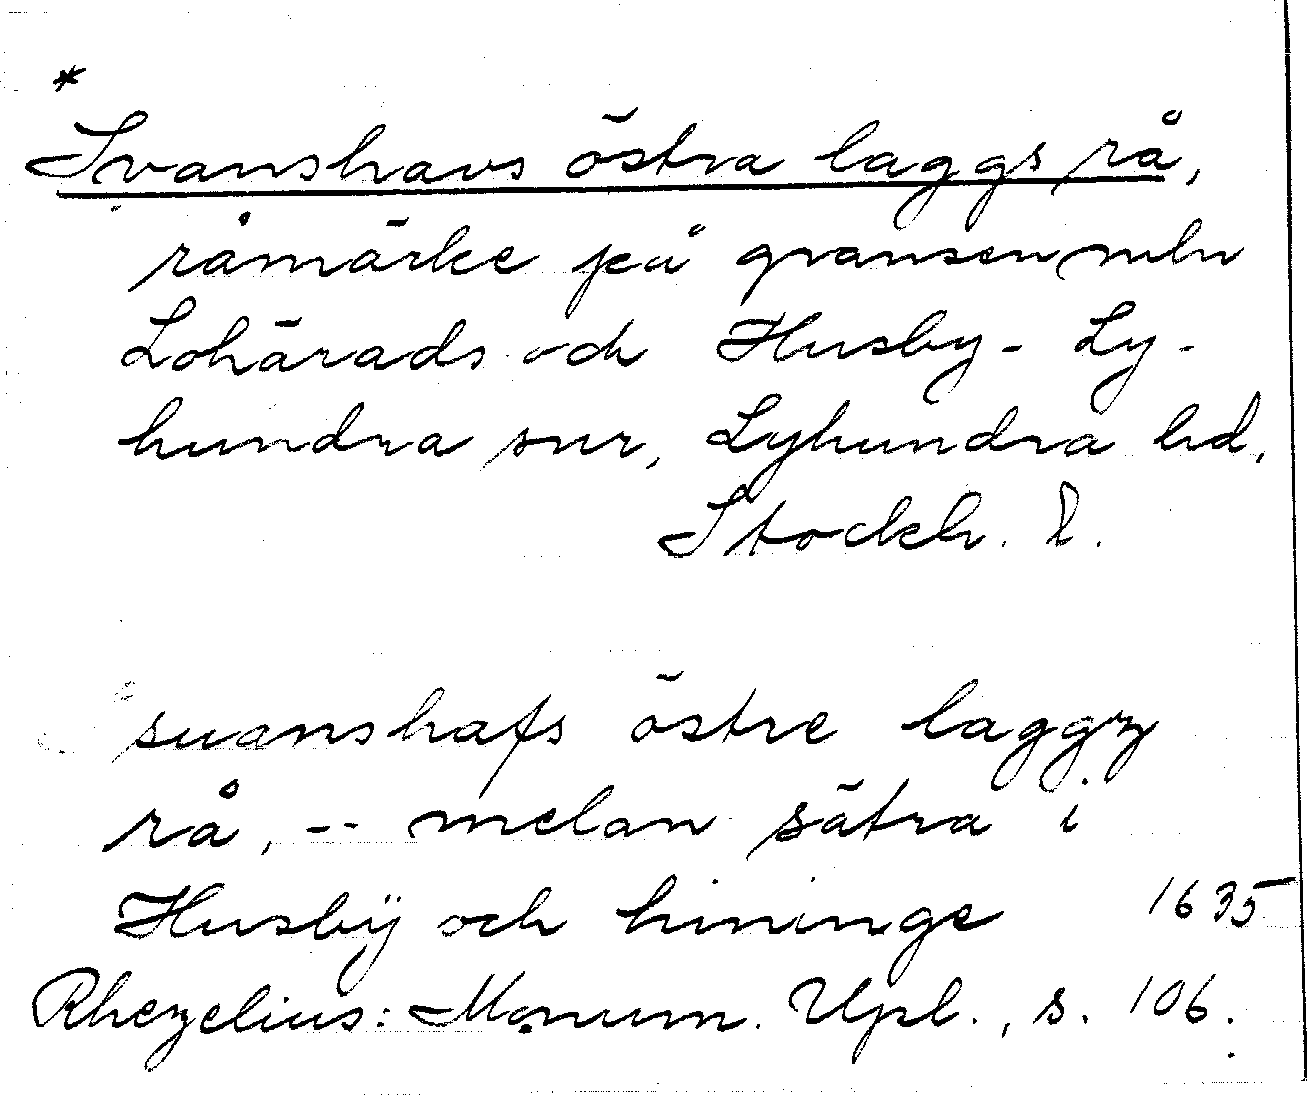 *
Svanshavs östra laggs rå,
råmärke på gränsen mln
Lohärads och Husby-Ly-
hundra snr, Lyhundra hd,
Stockh. l.
suanshafs östre laggz
rå, -- melan sätra i
Husbÿ och hininge 1635
Rhezelius: Monum. Upl., s. 106.